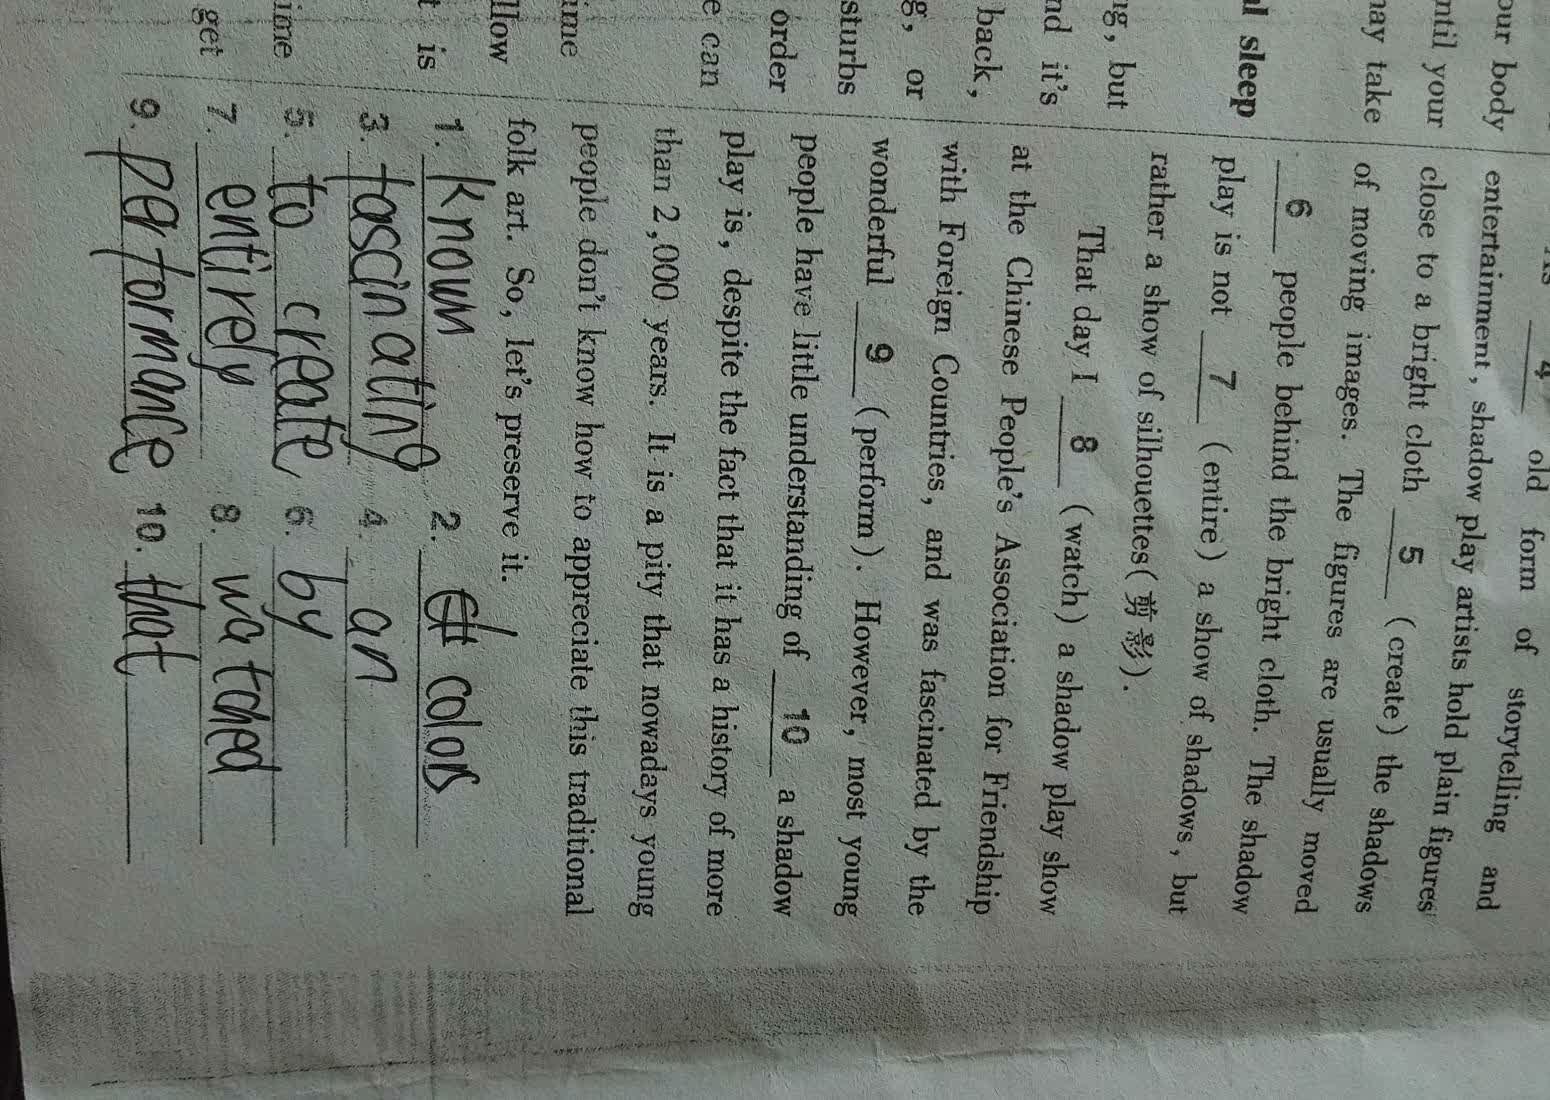 our body
ntil your
may take
al sleep
ng, but
nd it's
back,
g, or
sturbs
order
e can
ime
llow
t is
ime
get
4 old form of storytelling and
entertainment, shadow play artists hold plain figures
close to a bright cloth 5 (create) the shadows
of moving images. The figures are usually moved
6 people behind the bright cloth. The shadow
play is not 7 (entire) a show of shadows, but
rather a show of silhouettes(剪影).
That day I 8 (watch) a shadow play show
at the Chinese People's Association for Friendship
with Foreign Countries, and was fascinated by the
wonderful 9 (perform). However, most young
people have little understanding of 10 a shadow
play is, despite the fact that it has a history of more
than 2,000 years. It is a pity that nowadays young
people don't know how to appreciate this traditional
folk art. So, let's preserve it.
1. known 2. colors
3. fascinating 4. an
5. to create 6. by
7. entirely 8. watched
9. performance 10. that